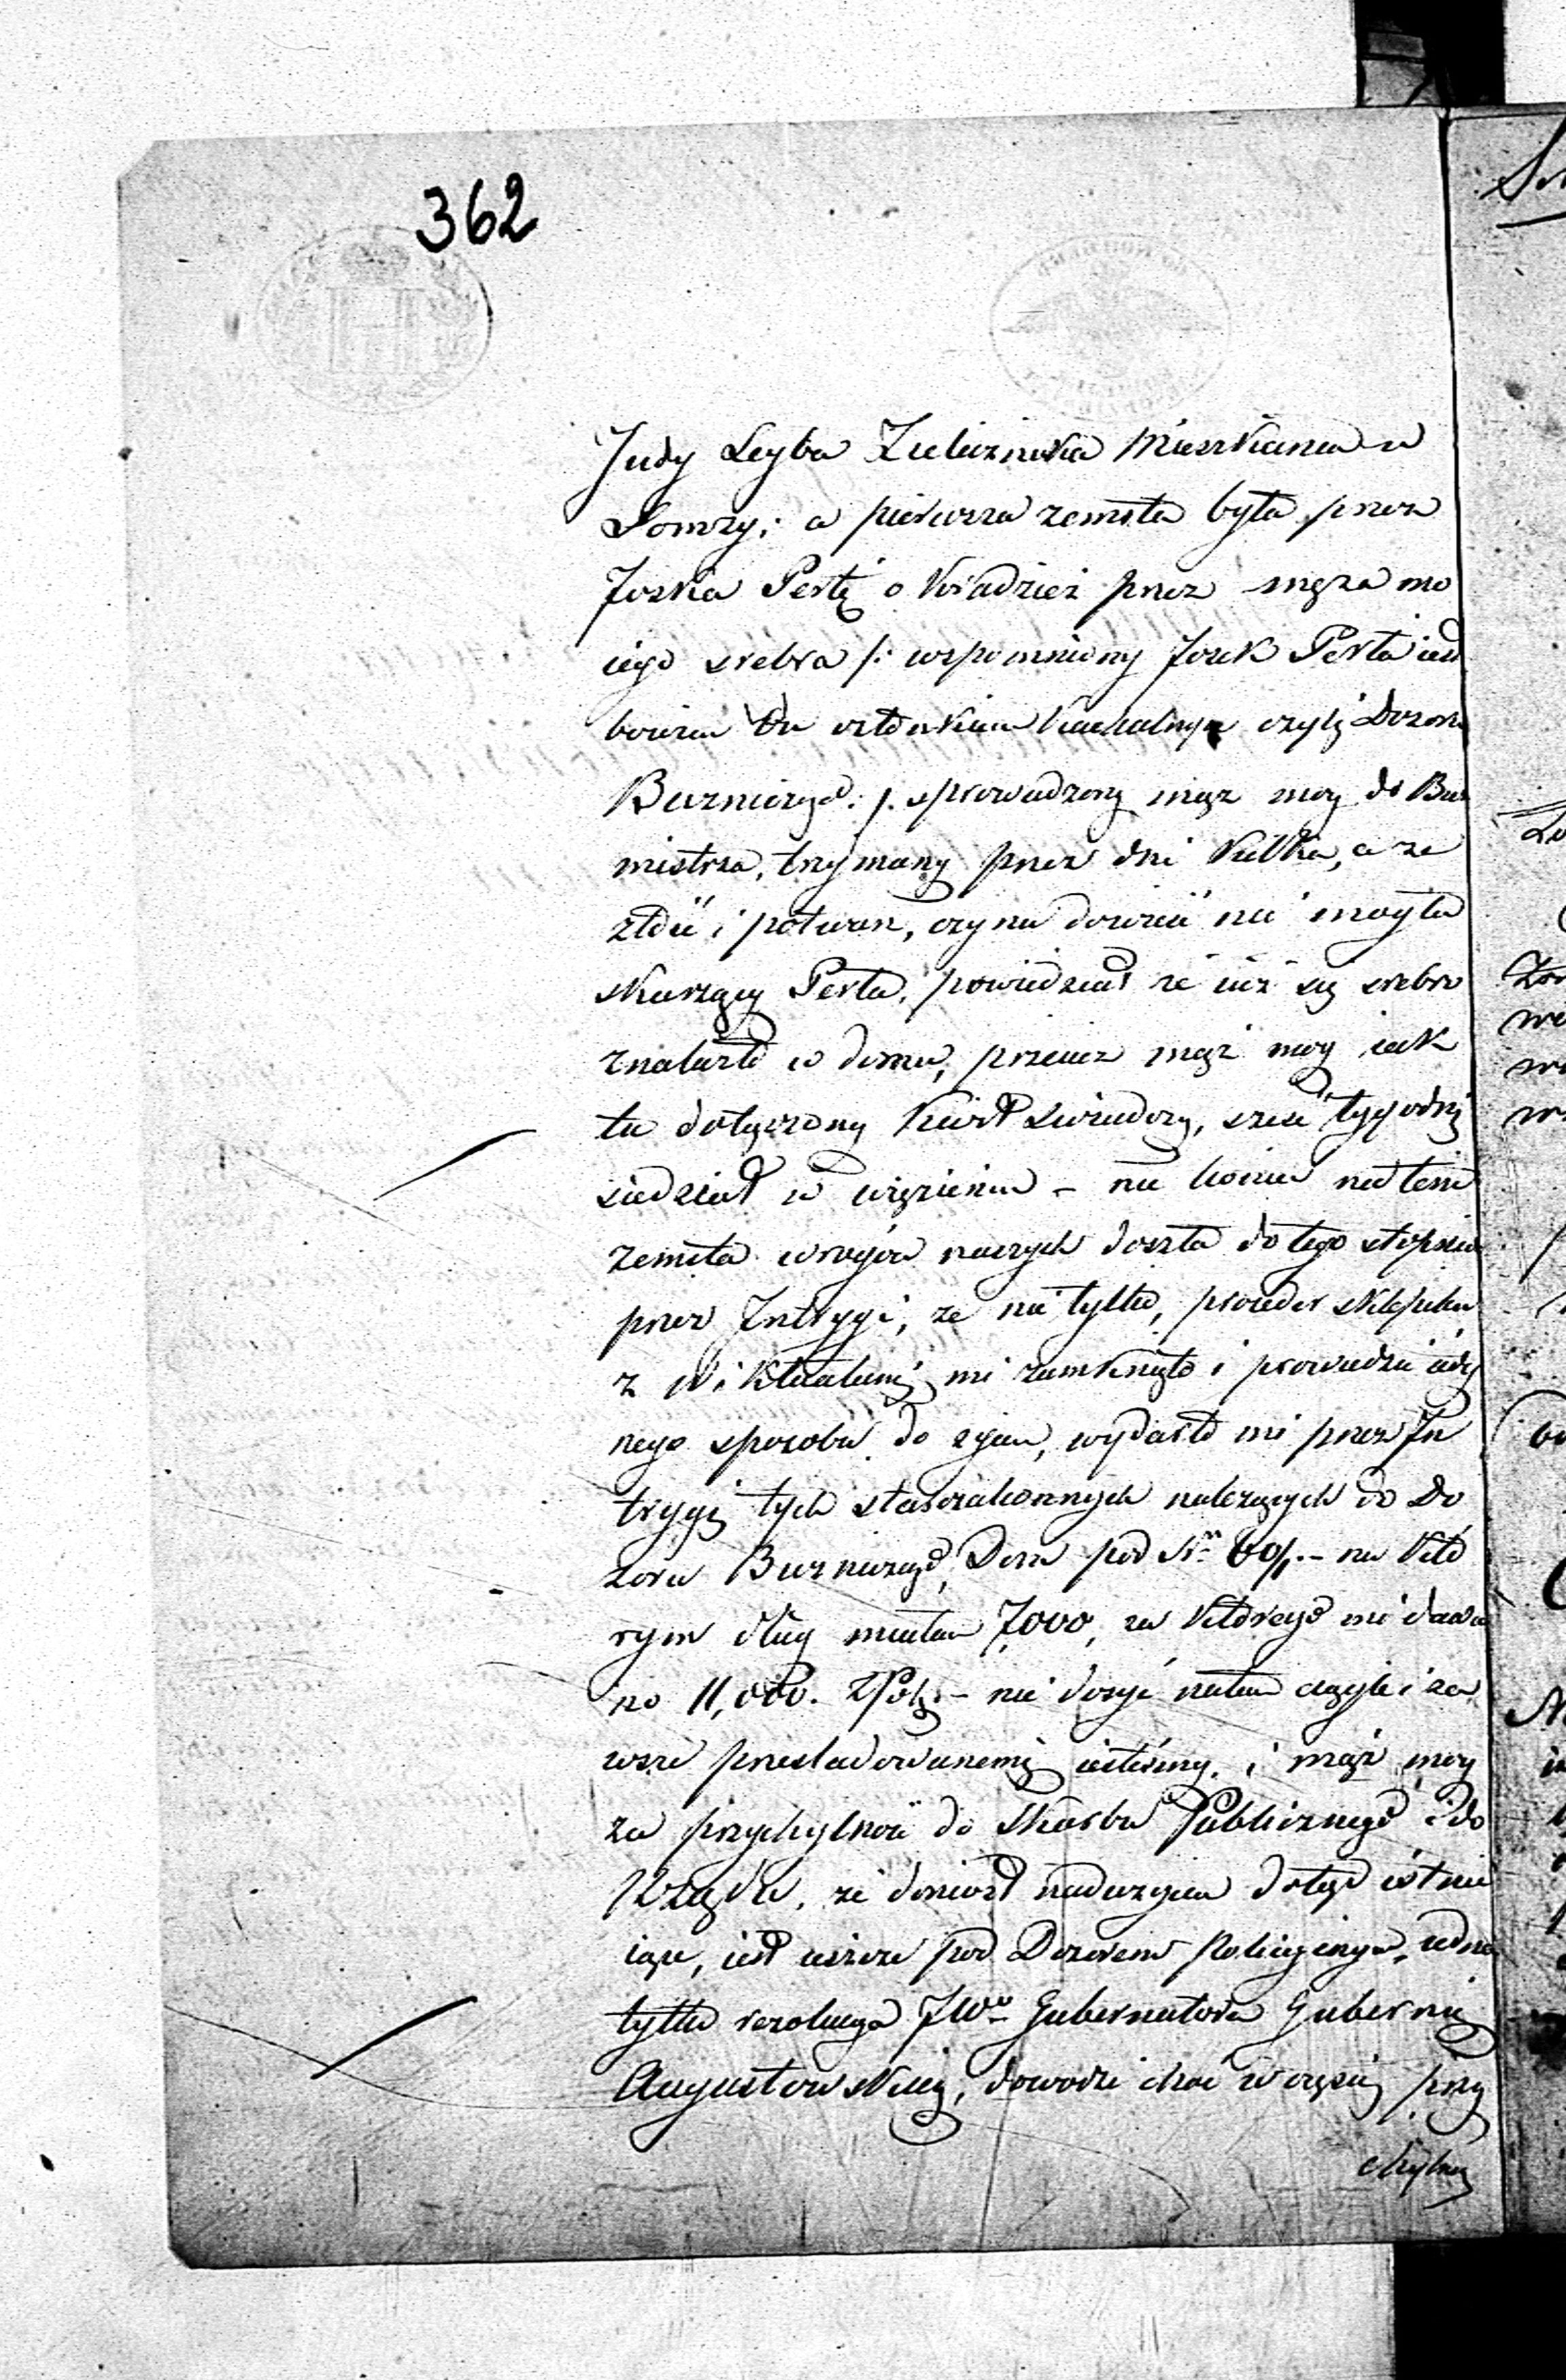 362
Judy Leyba Zieleznicka Mieszkanca w
Łomży; a pierwsza zemsta była przez
Joska Perłę o kradzież przez męża mo
iego srebra /: wspomniony Josek Perła iest
bowiem tu członkiem Kachalnym czyli Dozoru
Burniczego :/ sprowadzony mąż moy do Bur
mistrza, trzymany przez dni kilka, a ze
złość i potwarz, czynu dowieść nie mogła
skarżący Perła, powiedział że iuż się srebro
znalazło w domu, przecież mąż moy iak
tu dołączony kwit świadczy, sześć tygodni
siedział w więzieniu – nie koniec na tem
zemsta wrogów naszych doszła do tego stopnia
przez Intrygi, że nie tylko, proceder sklepiku
z Wiktuałami mi zamknięto i prowadzić iedy
nego sposobu do życia, wydarto mi przez In
trygi tych starozakonnych należących do Do
zoru Burniczego, Dom pod Nr 60/. – na któ
rym dług miałam 7,000, za którego mi dawa
no 11,000. ZłPol. – nie dosyć natem ciągle i za
wsze prześladowanemi iesteśmy, i mąż moy
za przychylność do Skarbu Publicznego i do
Rządu, że doniosł nadużycia dotąd istnie
iące, iest ieszcze pod Dozorem policyjnym, iedna
tylko rezolucya JWo Gubernatora Guberni
Augustowskiey, dowodzi choć w części przy
chylney